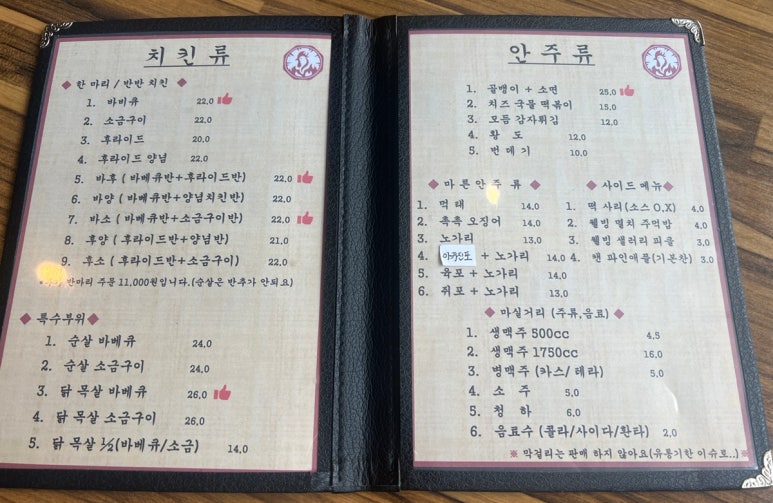 치킨류
◆ 한 마리 / 반반 치킨 ◆
1. 바비큐 22,0
2. 소금구이 22,0
3. 후라이드 20,0
4. 후라이드 양념 22,0
5. 바후 ( 바베큐반+후라이드반) 22,0
6. 바양 ( 바베큐반+양념치킨반) 22,0
7. 바소 ( 바베큐반+소금구이반) 22,0
8. 후양 ( 후라이드반+양념반) 21,0
9. 후소 ( 후라이드반+소금구이) 22,0
반마리 주문 11,000원입니다.(순살은 반추가 안되요)
◆ 특수부위 ◆
1. 순살 바베큐 24,0
2. 순살 소금구이 24,0
3. 닭 목살 바베큐 26,0
4. 닭 목살 소금구이 26,0
5. 닭 목살 ½(바베큐/소금) 14,0
안주류
1. 골뱅이 + 소면 25,0
2. 치즈 국물 떡볶이 15,0
3. 모듬 감자튀김 12,0
4. 황 도 12,0
5. 번 데 기 10,0
◆ 마 른 안 주 류 ◆
1. 먹 태 14,0
2. 촉촉 오징어 14,0
3. 노가리 13,0
4. + 노가리 14,0
5. 육포 + 노가리 14,0
6. 쥐포 + 노가리 13,0
◆ 사이드 메뉴 ◆
1. 떡 사리(소스 O,X) 4,0
2. 웰빙 멸치 주먹밥 4,0
3. 웰빙 샐러리 피클 3,0
4. 캔 파인애플(기본찬) 3,0
◆ 마실거리 (주류,음료) ◆
1. 생맥주 500cc 4,5
2. 생맥주 1750cc 16,0
3. 병맥주 (카스/ 테라) 5,0
4. 소 주 5,0
5. 청 하 6,0
6. 음료수 (콜라/사이다/환타) 2,0
※ 막걸리는 판매 하지 않아요(유통기한 이슈로..) ※